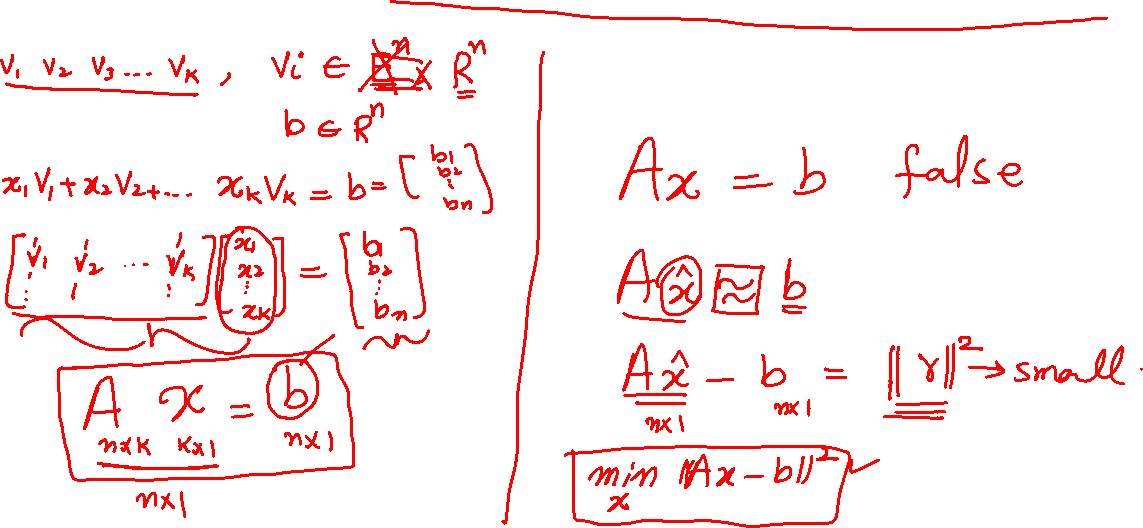 v₁ v₂ v₃ ... vₖ , vᵢ ∈ Rⁿ
b ∈ Rⁿ
x₁v₁ + x₂v₂ + ... xₖvₖ = b = [b₁ b₂ ⋮ bₙ]
[v₁ v₂ ... vₖ] [x₁ x₂ ⋮ xₖ] = [b₁ b₂ ⋮ bₙ]
A x = b
n×k k×1 n×1
n×1
Ax = b false
Ax̂ ≈ b
Ax̂ − b = ‖r‖² → small.
n×1 n×1
min ‖Ax − b‖² ✓
x